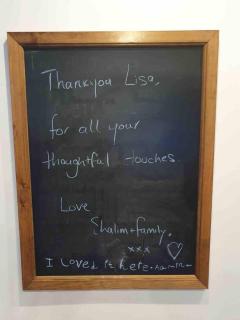 Thankyou Lisa,
for all your
thoughtful touches
Love
Shalim + family.
xxx
I Loved it here.